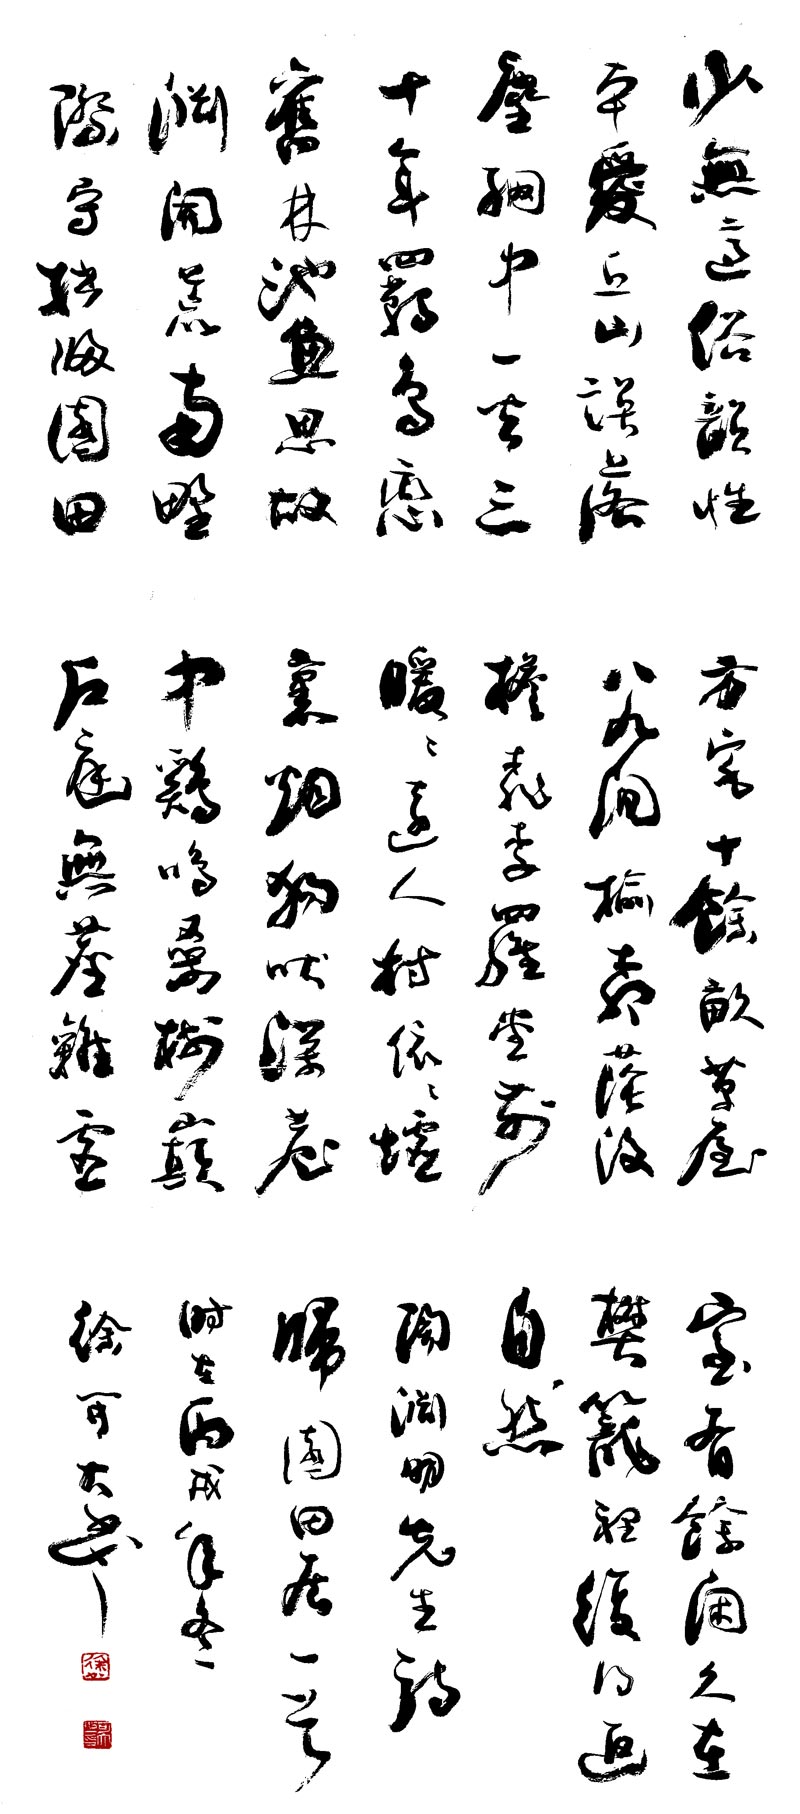 少無適俗韻性
本愛丘山誤落
塵網中一去三
十年羈鳥戀
舊林池魚思故
淵開荒南野
際守拙歸園田
方宅十餘畝草屋
八九間榆柳蔭後
檐桃李羅堂前
曖曖遠人村依依墟
裏烟狗吠深巷
中鷄鳴桑樹巔
户庭無塵雜虛
室有餘閑久在
樊籠裡復得返
自然
陶淵明先生詩
歸園田居一首
時在丙戌年冬
徐 書